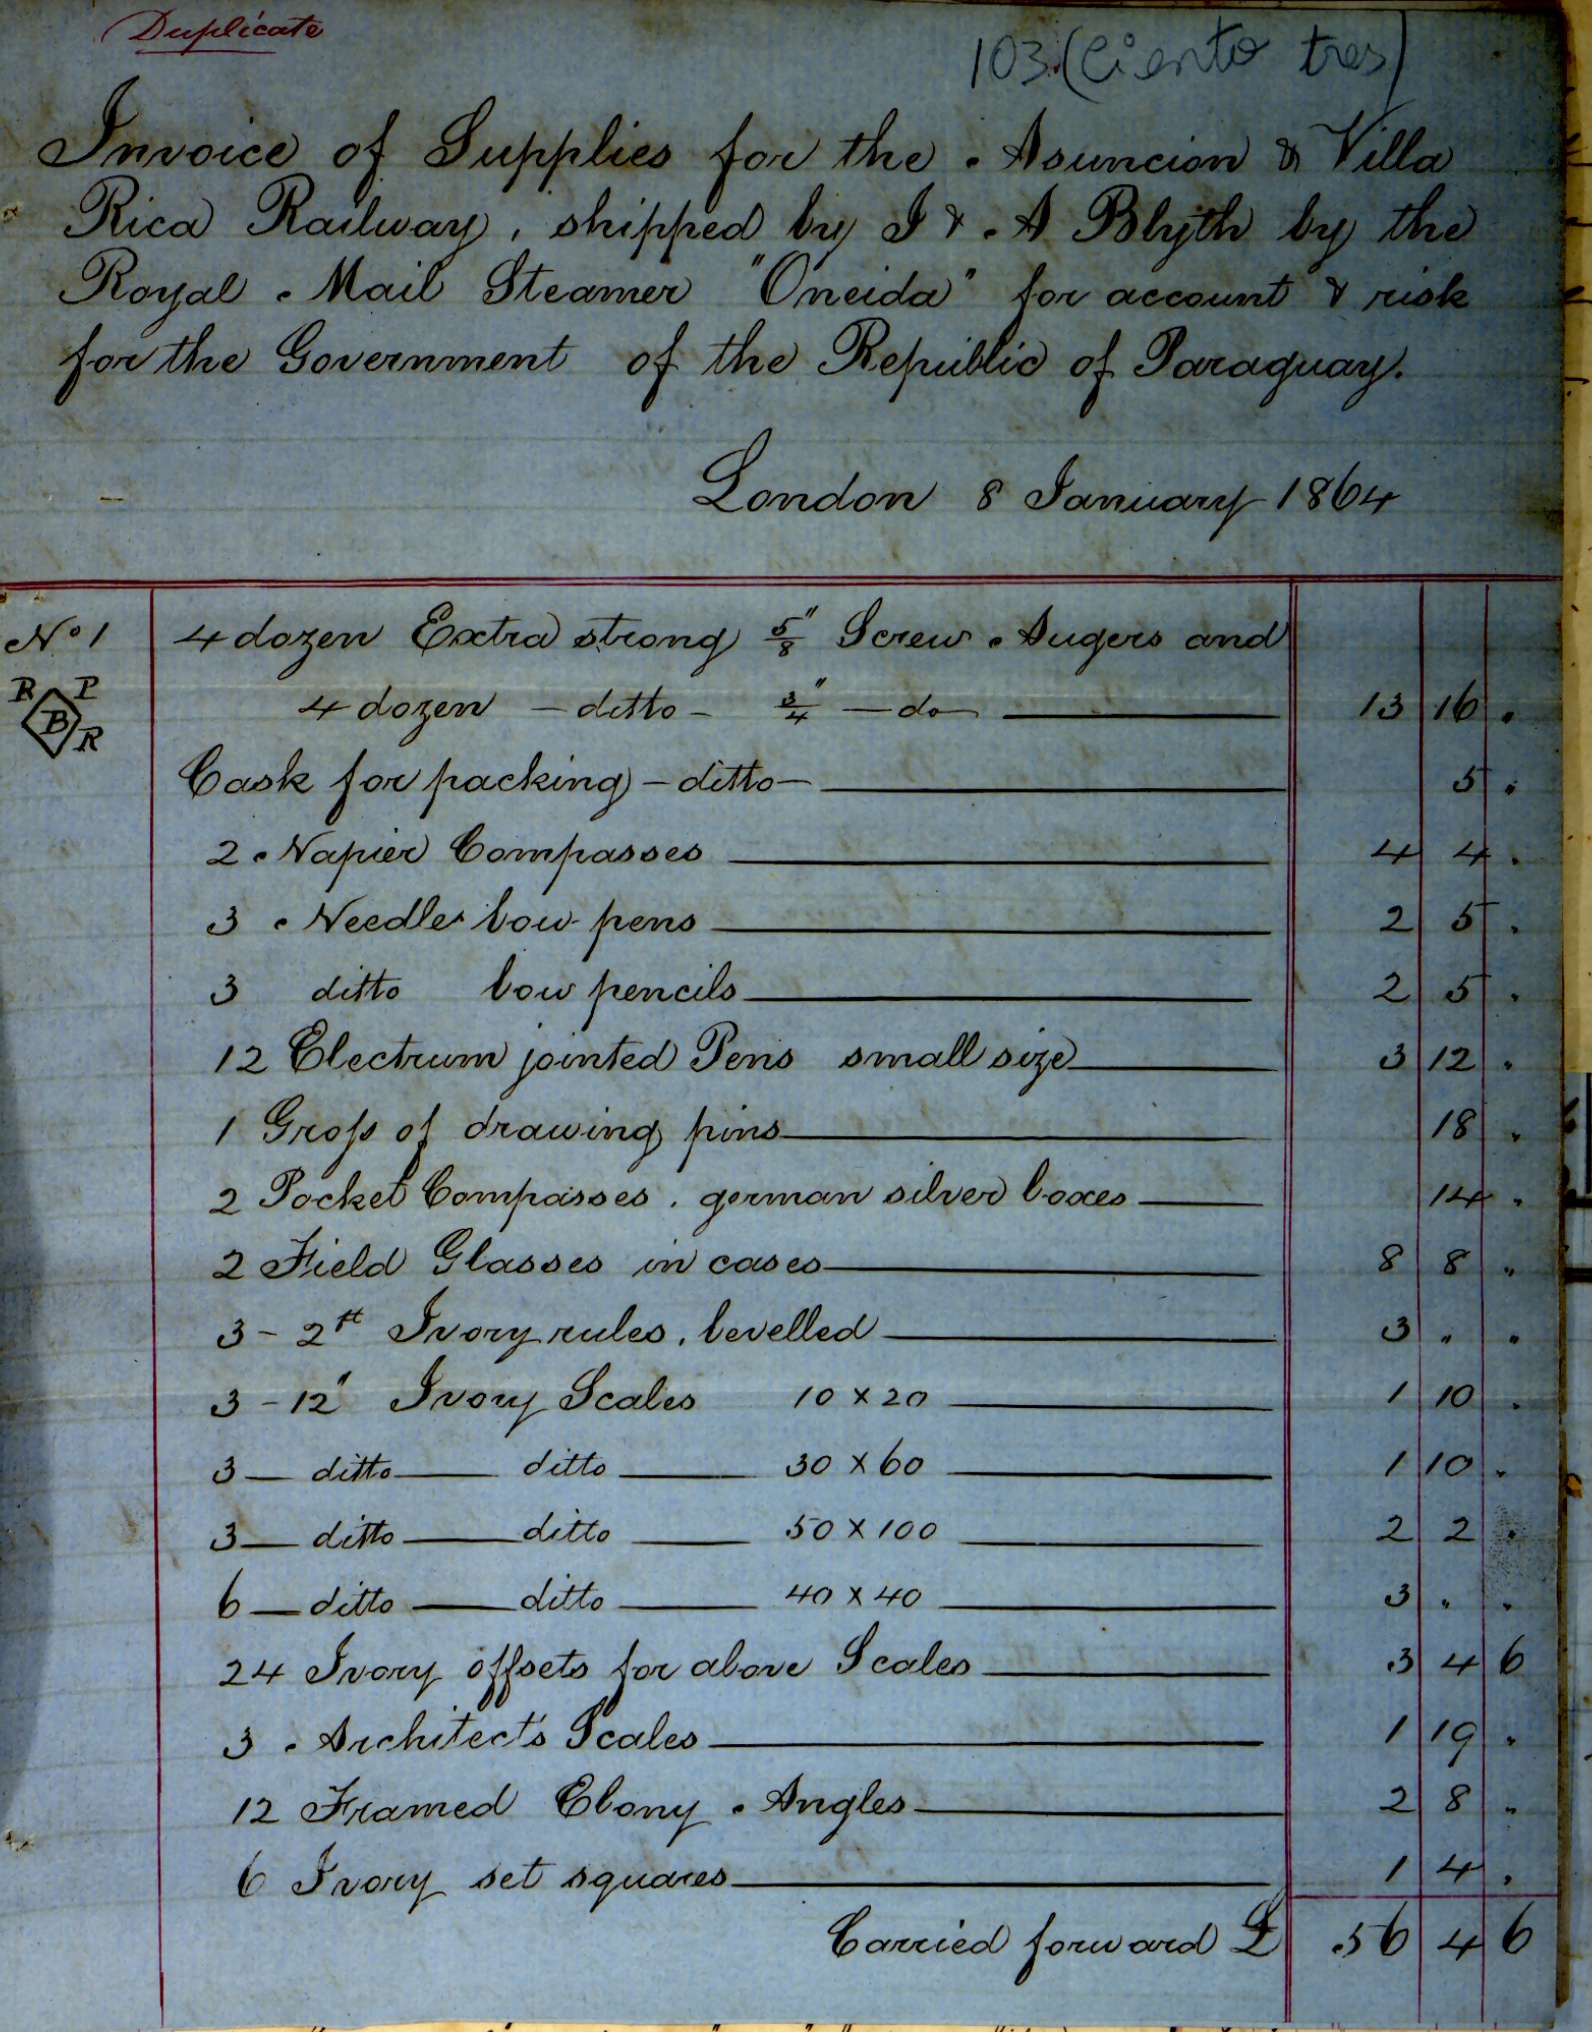 Duplicate
103 (Ciento tres)
Invoice of Supplies for the Asuncion & Villa
Rica Railway, shipped by J & A Blyth by the
Royal Mail Steamer "Oneida" for account & risk
for the Government of the Republic of Paraguay.
London 8 January 1864
No 1 4 dozen Extra strong 5/8" Screw Augers and
R P B R 4 dozen - ditto - 3/4" - do 13 16 .
Cask for packing - ditto - 5 .
2 Napier Compasses 4 4 .
3 Needle bow pens 2 5 .
3 ditto bow pencils 2 5 .
12 Electrum jointed Pens small size 3 12 .
1 Gross of drawing pins 18 .
2 Pocket Compasses, german silver boxes 14 .
2 Field Glasses in cases 8 8 "
3 - 2ft Ivory rules, bevelled 3 " .
3 - 12" Ivory Scales 10 x 20 1 10 .
3 ditto ditto 30 x 60 1 10 .
3 ditto ditto 50 x 100 2 2 .
6 ditto ditto 40 x 40 3 . .
24 Ivory offsets for above Scales 3 4 6
3 Architect's Scales 1 19 .
12 Framed Ebony Angles 2 8 "
6 Ivory set squares 1 4 .
Carried forward £ 56 4 6